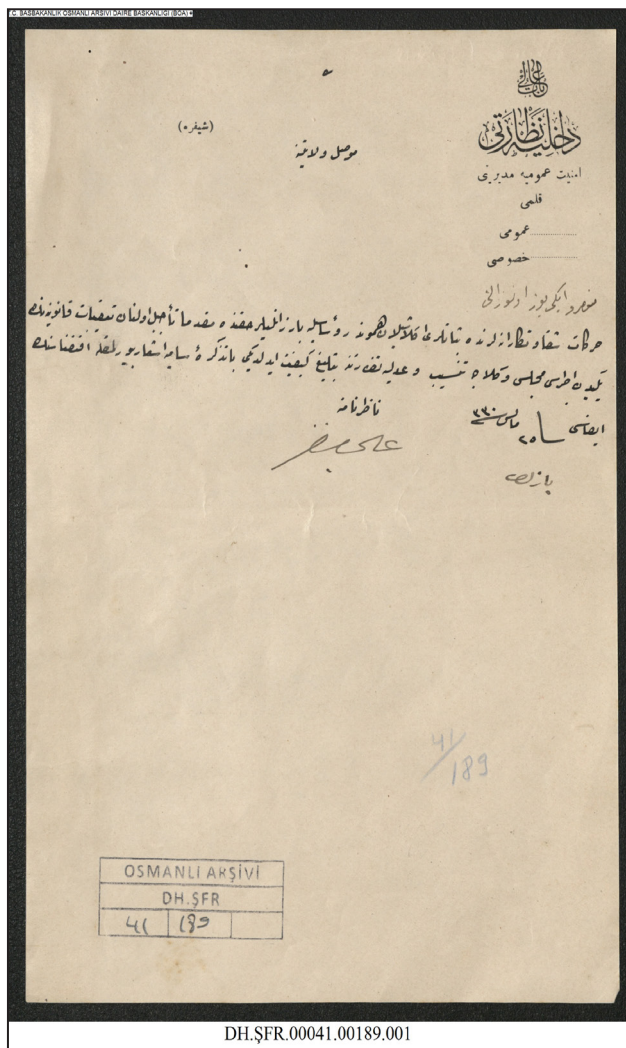 T.C. BAŞBAKANLIK OSMANLI ARŞİVİ DAİRE BAŞKANLIĞI (BOA)
باب عالی
داخلیه نظارتی
امنیت عمومیه مدیریتی
قلمی
عمومی
خصوصی
(شیفره)
موصل ولایتنه
حركات شقاوتكارانه لرنده ثباتلری اكلاشیلان هموند رؤساسیله بارزانلیلر حقنده مقدما تأجیل اولنان تعقیبات قانونیه نك
یكیدن اجراسی مجلس وكلاجه تنسیب و عدلیه نظارتنه تبلیغ كیفیت ایدلدیكی با تذكرهٔ سامیه اشعار بیورلمغله اقتضاسنك
ایفاسی
٢٥ مارت ٣٣٠
ناظر نامنه
41/189
OSMANLI ARŞİVİ
DH.ŞFR
41 189
DH.ŞFR.00041.00189.001